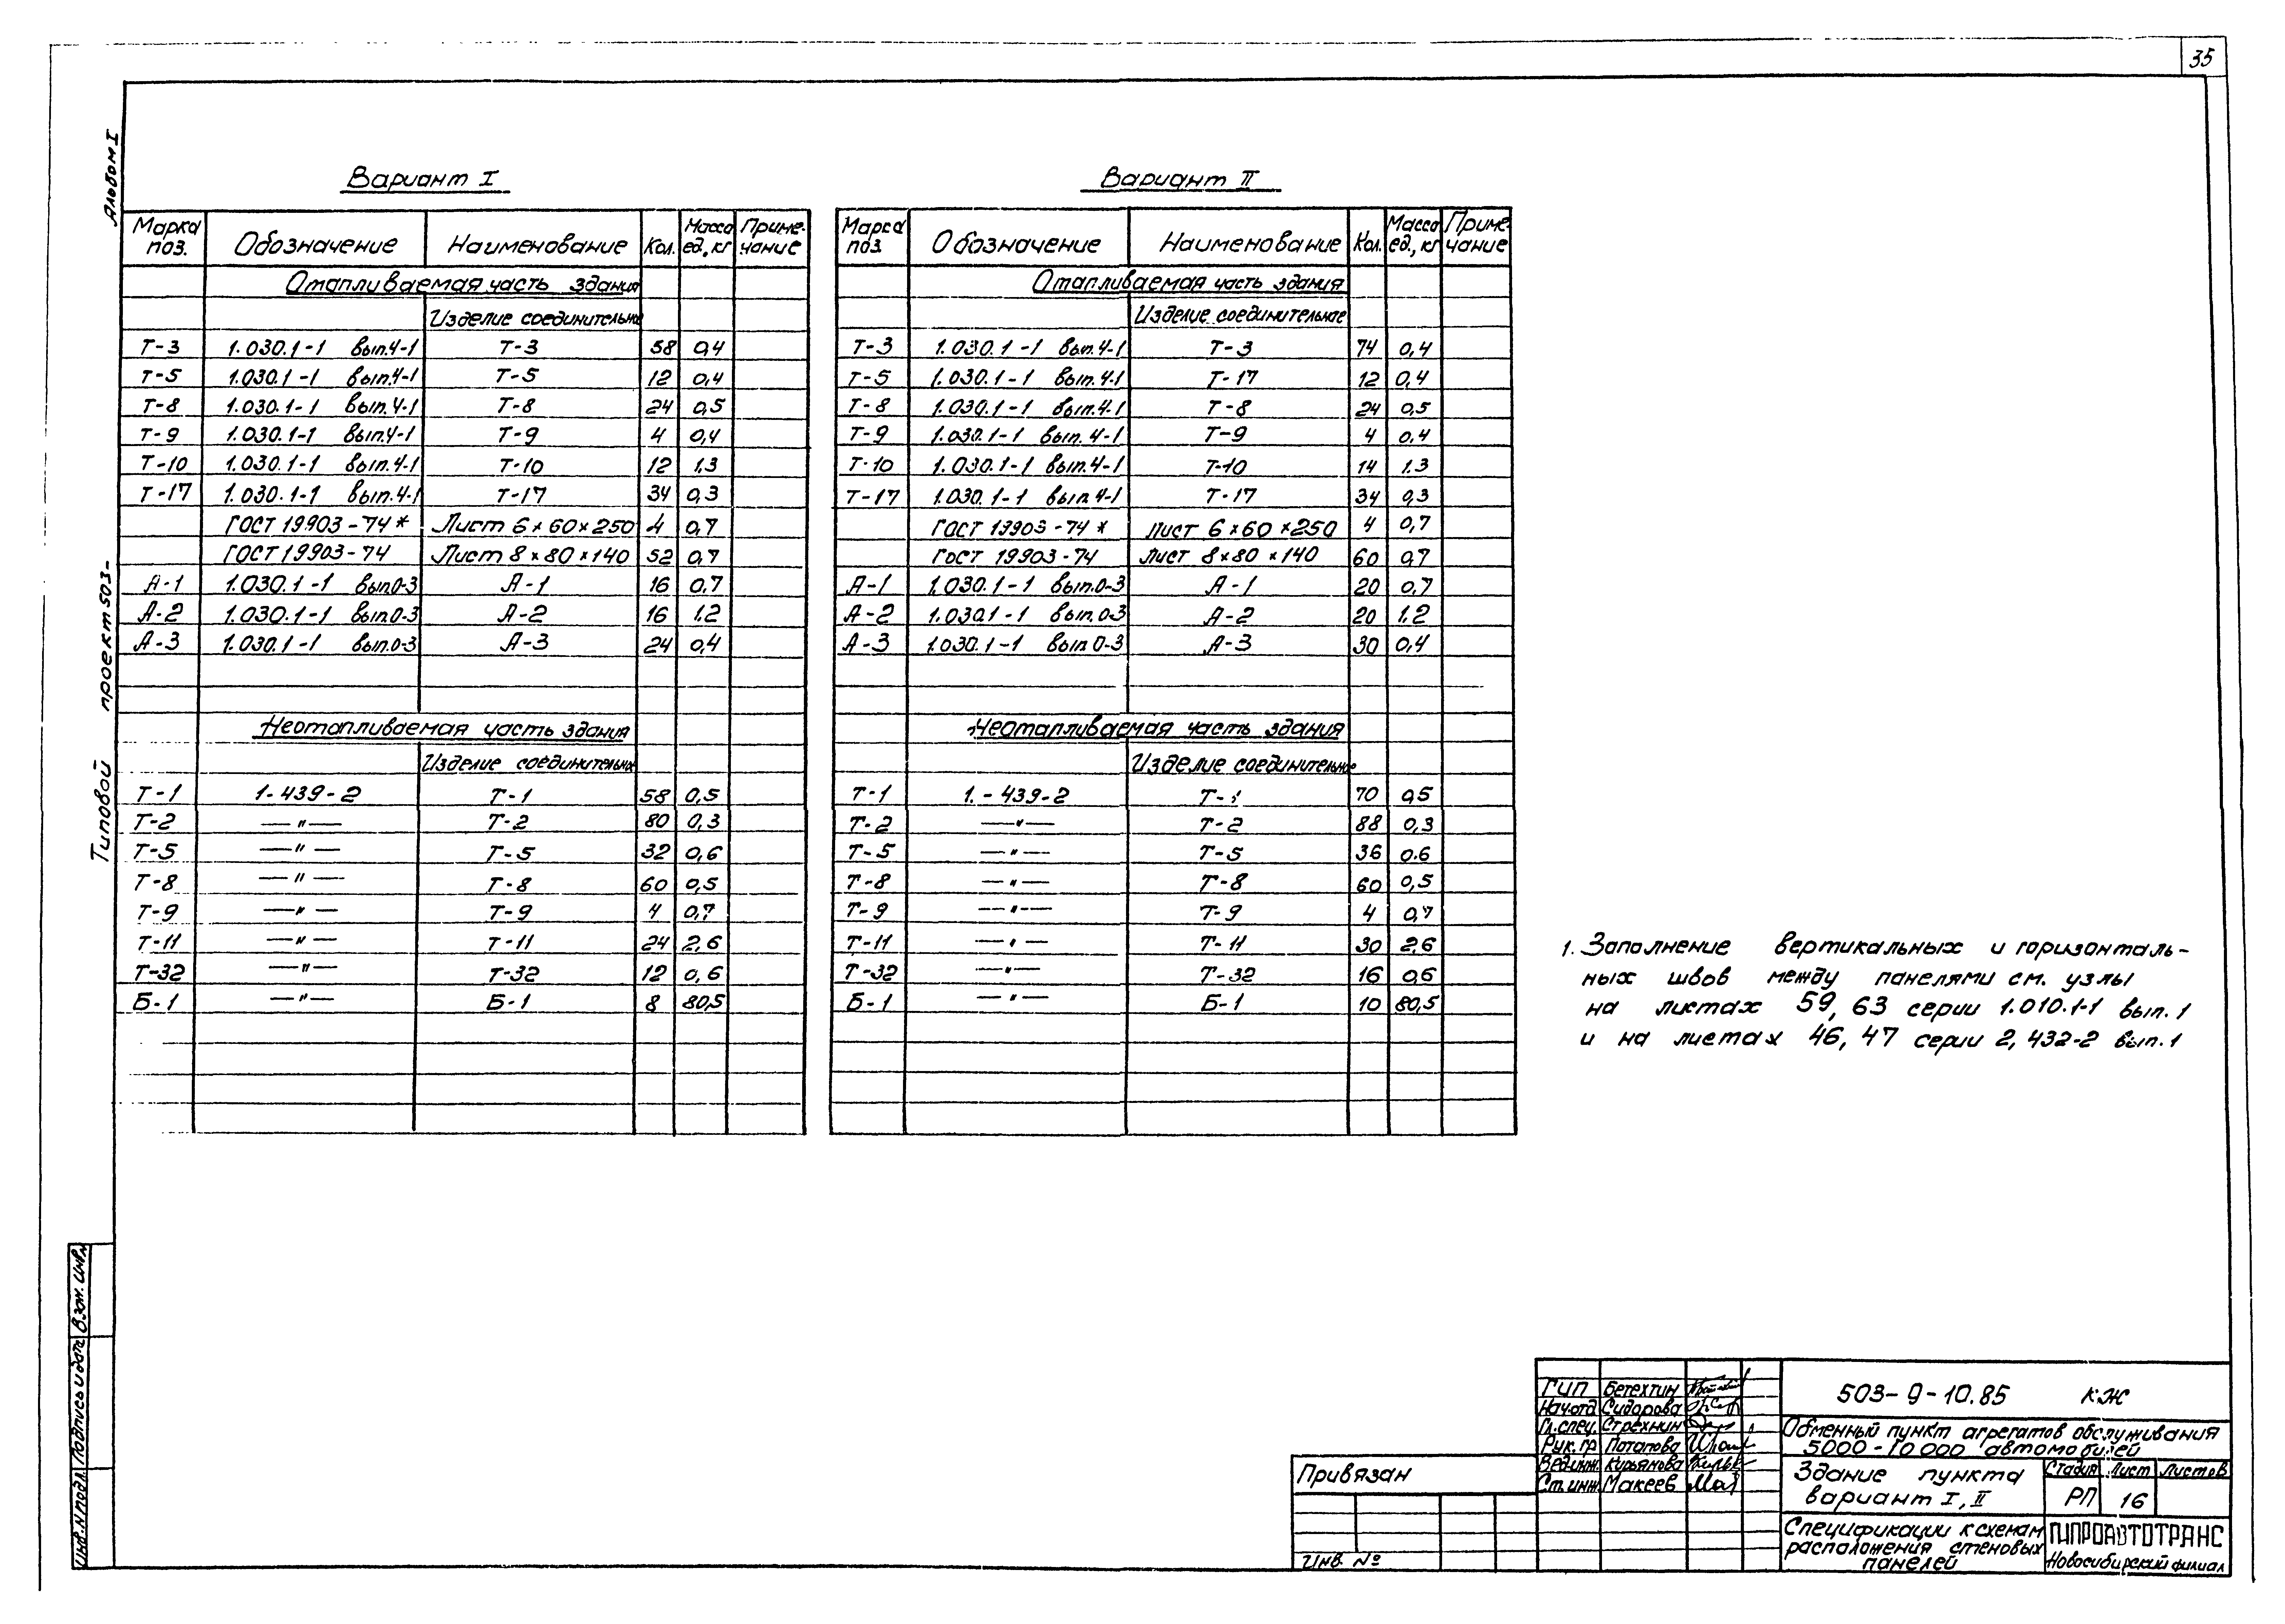 35
Альбом I
Типовой проект 503-
Вариант I
Марка поз. Обозначение Наименование Кол. Масса ед., кг Примечание
Отапливаемая часть здания
Изделие соединительн
Т-3 1.030.1-1 вып.4-1 Т-3 58 0,4
Т-5 1.030.1-1 вып.4-1 Т-5 12 0,4
Т-8 1.030.1-1 вып.4-1 Т-8 24 0,5
Т-9 1.030.1-1 вып.4-1 Т-9 4 0,4
Т-10 1.030.1-1 вып.4-1 Т-10 12 1.3
Т-17 1.030.1-1 вып.4-1 Т-17 34 0,3
ГОСТ 19903-74* Лист 6×60×250 4 0,7
ГОСТ 19903-74 Лист 8×80×140 52 0,7
А-1 1.030.1-1 вып.0-3 А-1 16 0,7
А-2 1.030.1-1 вып.0-3 А-2 16 1.2
А-3 1.030.1-1 вып.0-3 А-3 24 0,4
Неотапливаемая часть здания
Изделие соединительн
Т-1 1-439-2 Т-1 58 0,5
Т-2 —"— Т-2 80 0,3
Т-5 —"— Т-5 32 0,6
Т-8 —"— Т-8 60 0,5
Т-9 —"— Т-9 4 0,7
Т-11 —"— Т-11 24 2,6
Т-32 —"— Т-32 12 0,6
Б-1 —"— Б-1 8 80,5
Вариант II
Марка поз. Обозначение Наименование Кол. Масса ед., кг Примечание
Отапливаемая часть здания
Изделие соединительное
Т-3 1.030.1-1 вып.4-1 Т-3 74 0,4
Т-5 1.030.1-1 вып.4-1 Т-17 12 0,4
Т-8 1.030.1-1 вып.4-1 Т-8 24 0,5
Т-9 1.030.1-1 вып.4-1 Т-9 4 0.4
Т-10 1.030.1-1 вып.4-1 Т-10 14 1.3
Т-17 1.030.1-1 вып.4-1 Т-17 34 0,3
ГОСТ 19903-74* Лист 6×60×250 4 0,7
ГОСТ 19903-74 Лист 8×80×140 60 0,7
А-1 1.030.1-1 вып.0-3 А-1 20 0,7
А-2 1.030.1-1 вып.0-3 А-2 20 1.2
А-3 1.030.1-1 вып 0-3 А-3 30 0,4
Неотапливаемая часть здания
Изделие соединительно
Т-1 1.-439-2 Т-1 70 0,5
Т-2 —"— Т-2 88 0,3
Т-5 —"— Т-5 36 0.6
Т-8 —"— Т-8 60 0,5
Т-9 —"— Т-9 4 0,7
Т-11 —"— Т-11 30 2,6
Т-32 —"— Т-32 16 0,6
Б-1 —"— Б-1 10 80,5
1. Заполнение вертикальных и горизонталь-
ных швов между панелями см. узлы
на листах 59, 63 серии 1.010.1-1 вып. 1
и на листах 46, 47 серии 2,432-2 вып. 1
Инв.N подл. Подпись и дата Взам. инв.N
Привязан
Инв. №
ГИП Бегехтин
Нач.отд Сидорова
Гл.спец. Стрехнин
Рук. гр. Потапова
Вед.инж. Кирьянова
Ст.инж. Макеев
503-9-10.85 КЖ
Обменный пункт агрегатов обслуживания
5000-10000 автомобилей
Здание пункта
вариант I, II
Стадия Лист Листов
РП 16
Спецификации к схемам
расположения стеновых
панелей
ГИПРОАВТОТРАНС
Новосибирский филиал